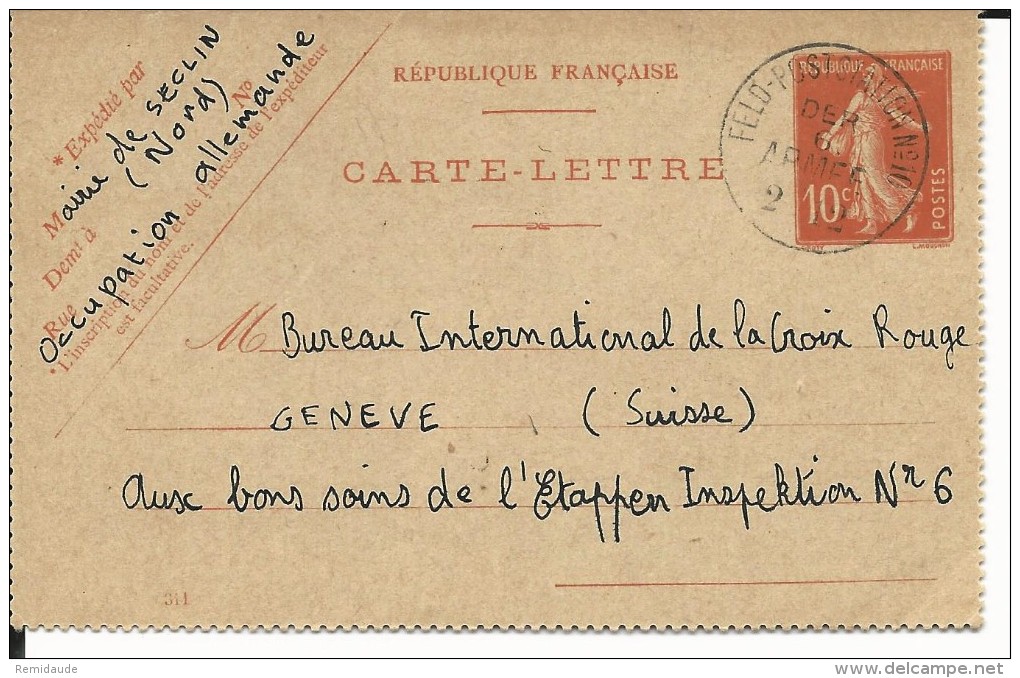 * Expédié par
Mairie de SECLIN
(Nord)
Demt à
Occupation allemande
Rue No
L'inscription du nom et de l'adresse de l'expéditeur
est facultative.
RÉPUBLIQUE FRANÇAISE
CARTE-LETTRE
RÉPUBLIQUE FRANÇAISE
10 c.
POSTES
DER
6
ARMEE
2 12
M Bureau International de la Croix Rouge
GENEVE (Suisse)
Aux bons soins de l'Etappen Inspektion Nr 6
311
Remidaude
www.delcampe.net